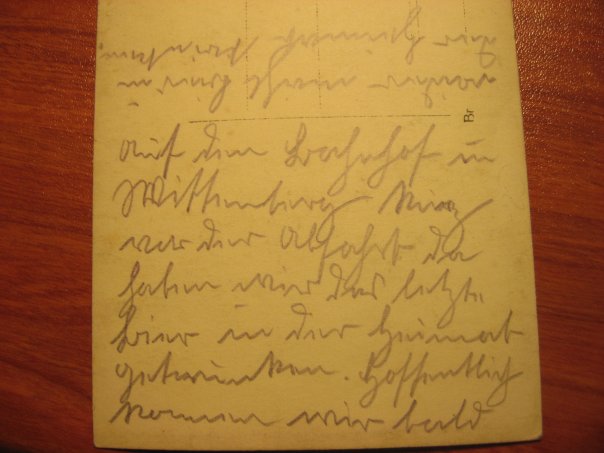 Auf dem Bahnhof in
Wittenberg kurz
vor der Abfahrt da
haben wir das letzte
Bier in der Heimat
getrunken. Hoffentlich
kommen wir bald
wieder
Heimat
Br